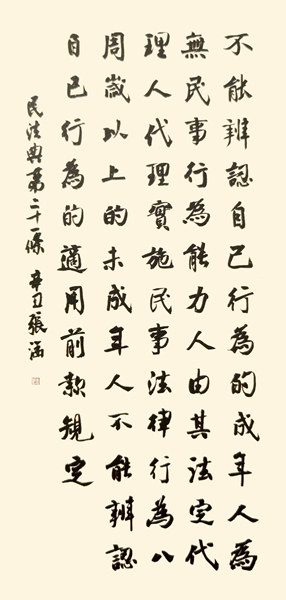 不能辨認自己行為的成年人為
無民事行為能力人由其法定代
理人代理實施民事法律行為八
周歲以上的未成年人不能辨認
自己行為的適用前款規定
民法典第二十一條 辛丑 張涵